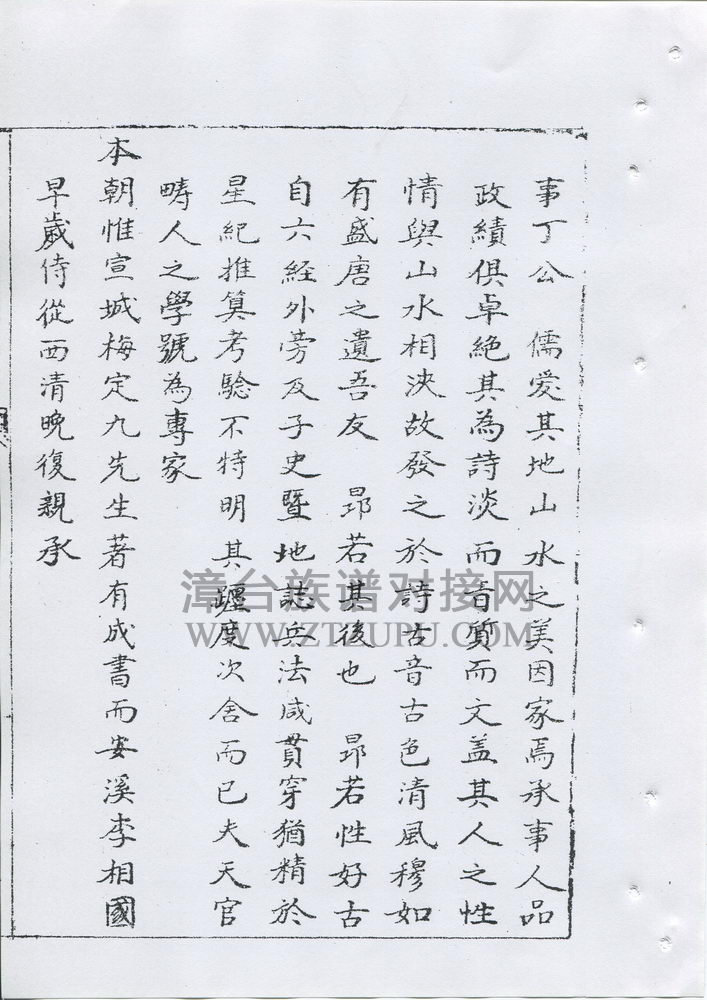 事丁公　儒爱其地山水之美因家焉承事人品
政績俱卓絶其為詩淡而音質而文盖其人之性
情與山水相泱故發之於詩古音古色清風穆如
有盛唐之遺吾友　昴若其後也　昴若性好古
自六經外旁及子史暨地誌兵法咸貫穿猶精於
星紀推算考驗不特明其躔度次舍而已夫天官
疇人之學號為專家
本朝惟宣城梅定九先生著有成書而安溪李相國
早歲侍從西清晚復親承
漳台族谱对接网
WWW.ZTZUPU.COM